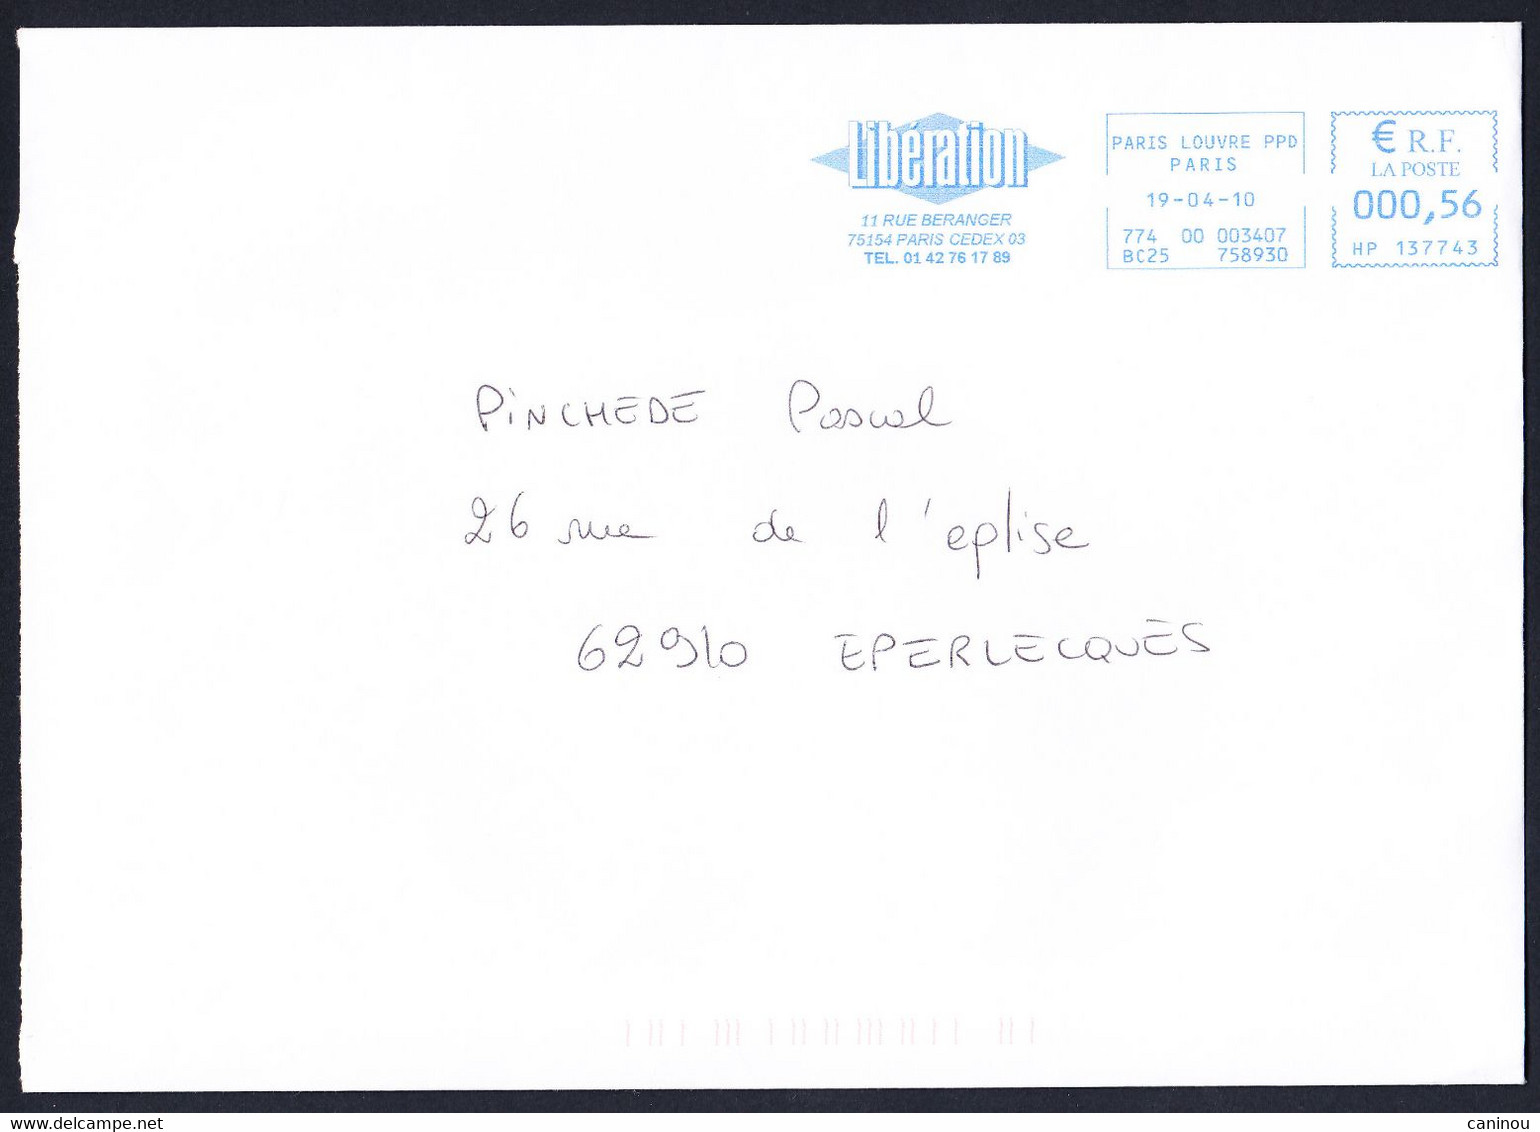 Libération
11 RUE BERANGER
75154 PARIS CEDEX 03
TEL. 01 42 76 17 89
PARIS LOUVRE PPD
PARIS
19-04-10
774 00 003407
BC25 758930
€ R.F.
LA POSTE
000,56
HP 137743
PiNCHEDE Pascal
26 rue de l'eplise
62910 EPERLECQUES
www.delcampe.net
caninou